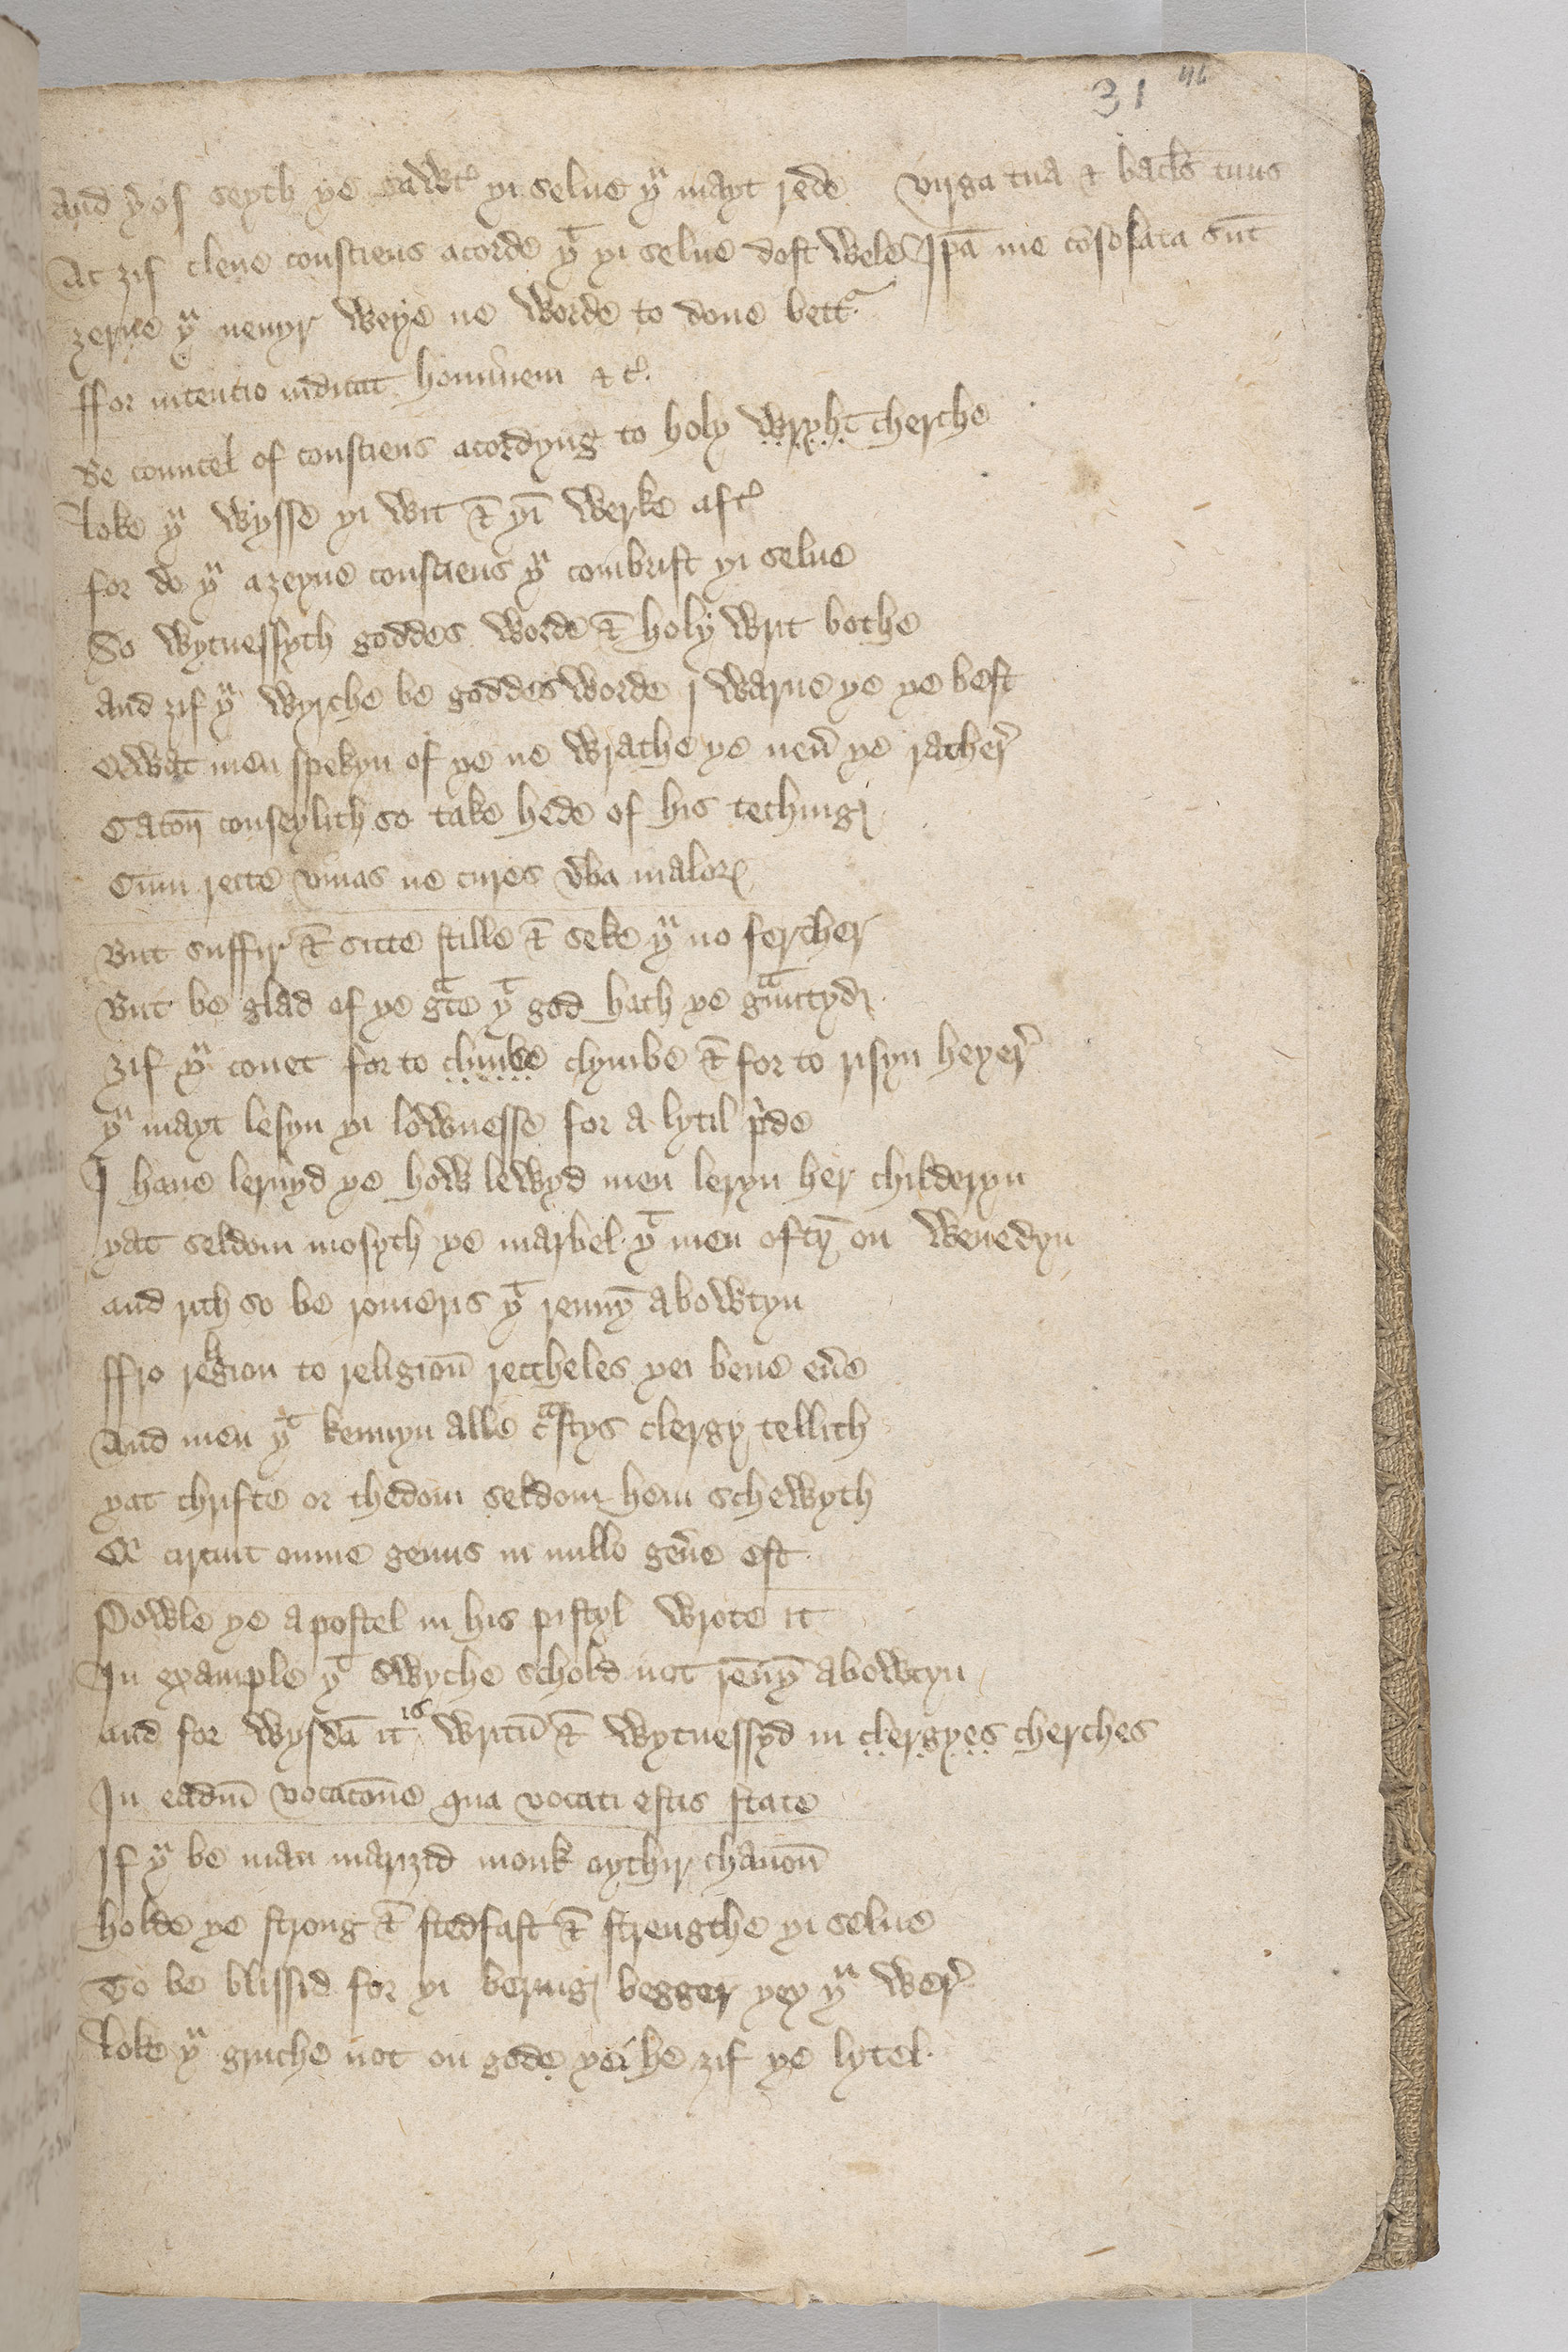 31 46
And yof seyth ye sawtͬ yi selue yͧ mayt rede virga tua & bacls tuus
At ȝif clene consciens acorde yͭ yi selue dost wele Ipā me cōsolata sūt
ȝerne yͧ neuyr weye ne worde to done bettͬ
ffor intentio iudicat hominem & cͬ.
Be councel of consciens acordyng to holy wryht cherche
loke yͧ wysse yi wit & yī werke aftͬ
for do yͧ aȝeyne consciens yͧ combrist yi selue
So wytnessyth goddes worde & holy writ bothe
And ȝif yͧ wyrche be goddes worde I warne ye ye best
Qwat men spekyn of ye ne wrathe ye neuͬ ye ratherͬ
Catōn conseylith so take hede of his teching
Cum recte viuas ne cures v̄ba malorꝝ
But suffir & sitte stille & seke yͧ no fercher
But be glad of ye gͣce yͭ god hath ye gͣuntyd
ȝif yͧ couet for to climbe clymbe & for to risyn heyerͬ
yͧ mayt lesyn yi lownesse for a lytil pͥde
I haue lernyd ye how lewyd men leryn her childeryn
yat seldom mosyth ye marbel yͭ men oftyn̄ on wenedyn
and rith so be romeris yͭ rennȳ abowtyn
ffro religion to religioun̄ reccheles yei bene eūe
And men yͭ kennyn alle cͣftys clergy tellith
yat christe or thedom seldom hem schewyth
Qͥ circuit omne genus in nullo gen̄e est
Powle ye apostel in his pistyl wrote it
In example yͭ swyche schold not rēnȳ abowtyn
and for wysdā it is writū & wytnessyd in clergyes cherches
In eadm̄ vocatōne qua vocati estis state
If yͧ be man mariȝid monk oythir chanon̄
holde ye strong & stedfast & strengthe yi selue
To be blissid for yi bering begger yey yͧ werͬ
loke yͧ gruche not on gode yei he ȝif ye lytel